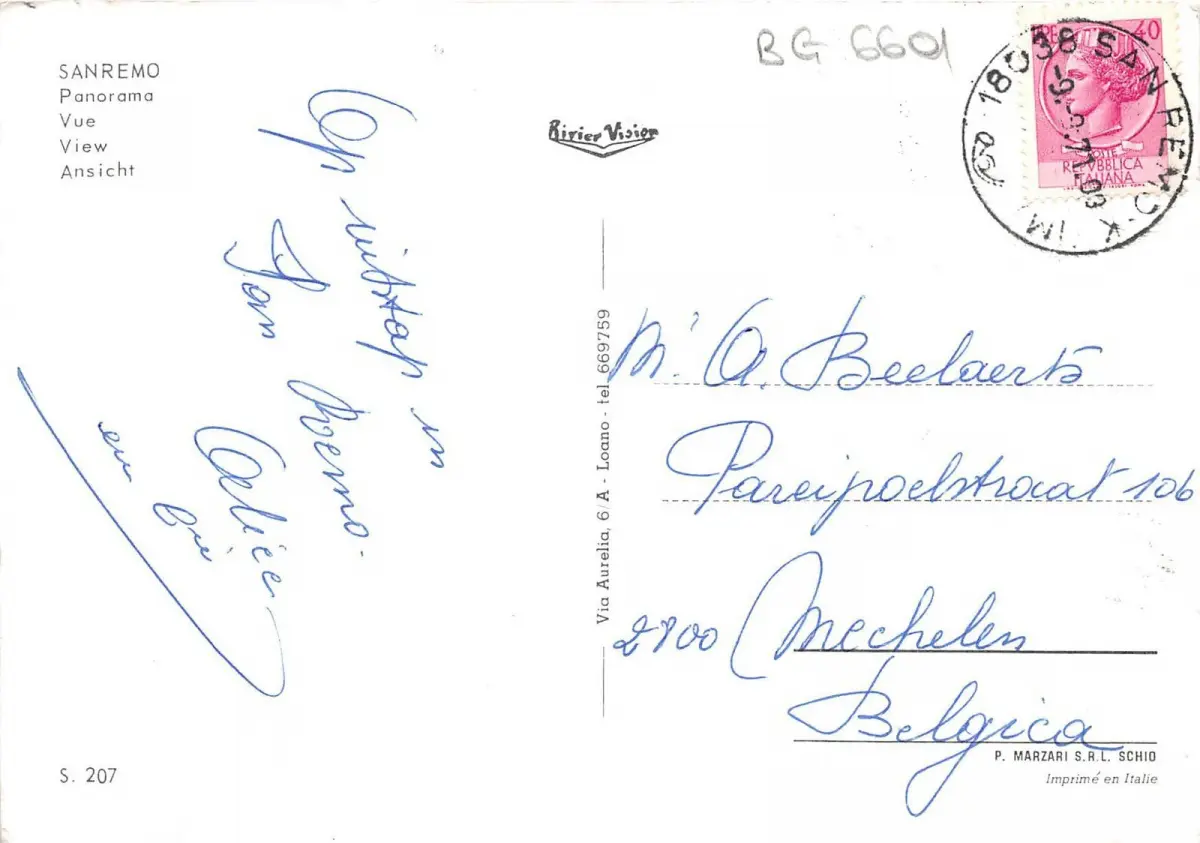 SANREMO
Panorama
Vue
View
Ansicht
BG 6601
Rivier Vision
LIRE 40
POSTE
REPVBBLICA
ITALIANA
18038 SAN REMO-K. IM
Op uitstap in
San Remo.
Celiee
en
M' A. Beelaerts
Pareipoelstraat 106
2800 Mechelen
Belgica
Via Aurelia, 6/A - Loano - tel. 669759
S. 207
P. MARZARI S.R.L. SCHIO
Imprimé en Italie